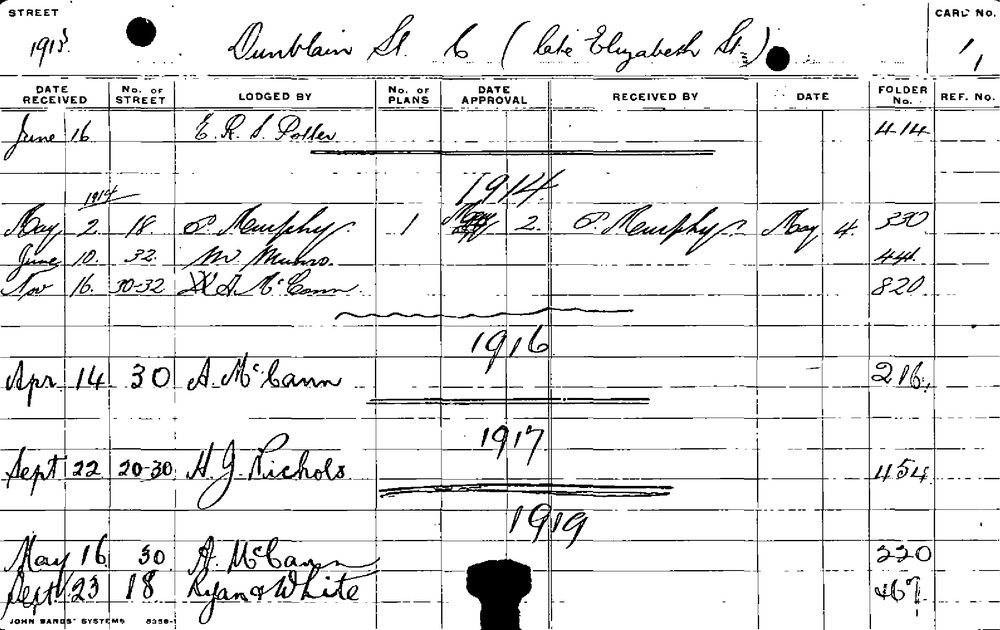 STREET CARD No.
1913 Dunblain St. C (late Elizabeth St.) 1/1
DATE RECEIVED No. OF STREET LODGED BY No. OF PLANS DATE APPROVAL RECEIVED BY DATE FOLDER No. REF. No.
June 16 E. R. S. Potter 414
1914
1914
May 2. 18 P. Memphys. 1 May 2. P. Memphys. May 4. 330
June 10. 32. W. Munro. 441.
Nov 16. 30-32 A. McCann. 820.
1916
Apr. 14 30 A. McCann 216.
1917
Sept 22 20-30 H. J. Nichols 454
1919
May 16 30 A. McCann 220
Sept 23 18 Ryan & White 467
JOHN SANDS' SYSTEMS